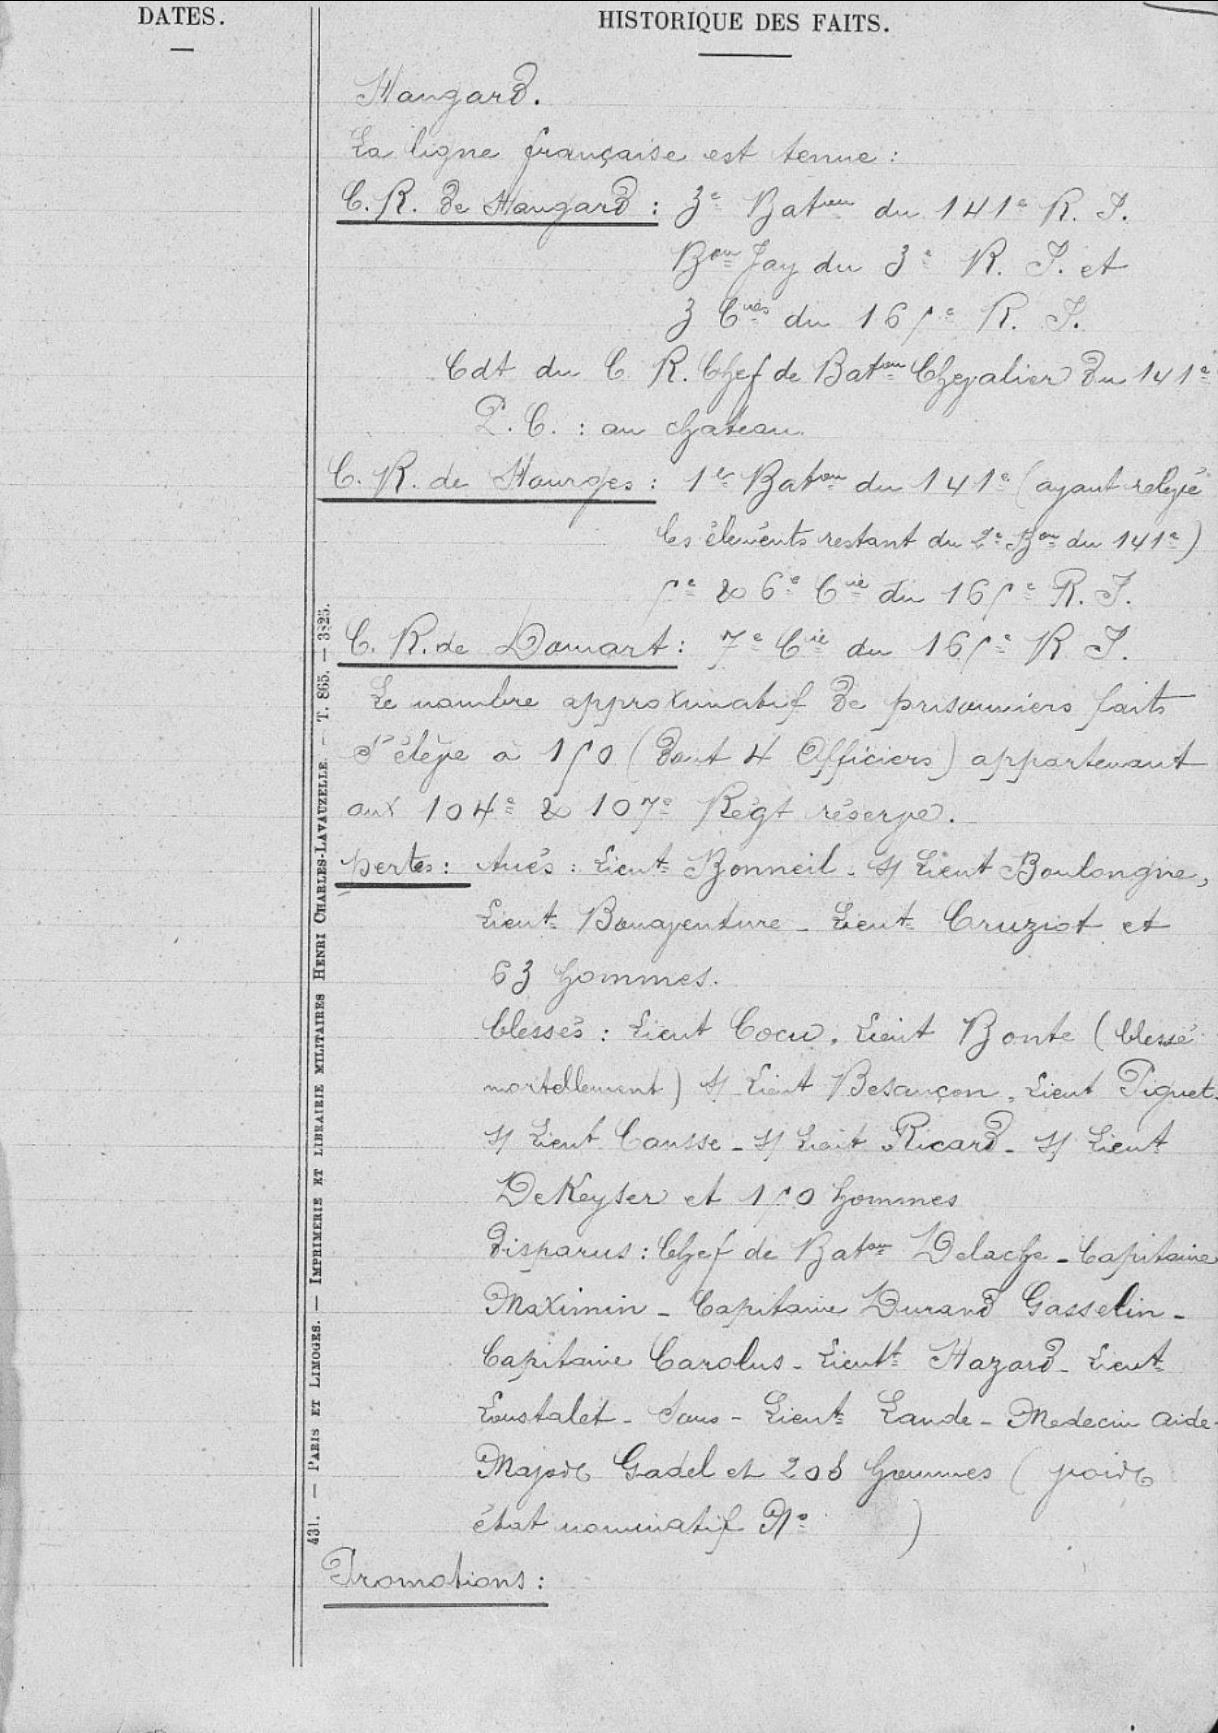 DATES.
HISTORIQUE DES FAITS.
Hangard.
La ligne française est tenue :
C. R. de Hangard : 3e Bataon du 141e R. I.
Bon Jay du 3e R. I. et
3 Cies du 165e R. I.
Cdt du C. R. Chef de Baton Chevalier du 141e
P. C. : au chateau
C. R. de Hourges : 1er Baton du 141e (ayant relevé
les éléments restant du 2e Bon du 141e)
5e & 6e Cie du 165e R. I.
C. R. de Domart : 7e Cie du 165e R I.
Le nombre approximatif de prisonniers faits
s'élève à 150 (dont 4 Officiers) appartenant
aux 104e & 107e Régt réserve.
Pertes : tués : Lieut Bonneil - S/ Lieut Boulongne,
Lieut Bonaventure - Lieut Cruziot et
63 hommes.
blessés : Lieut Cocu, Lieut Bonte (blessé
mortellement) S/ Lieut Besançon, Lieut Piquet.
S/ Lieut Causse - S/ Lieut Ricard - S/ Lieut
DeKeyser et 150 hommes
disparus : Chef de Baton Delache - Capitaine
Maximin - Capitaine Durand Gasselin -
Capitaine Carolus - Lieutt Hazard - Lieut
Loustalet - Sous - Lieut Lande - Medecin aide-
Major Gadel et 208 hommes ( voir
état nominatif No )
Promotions :
431. — PARIS ET LIMOGES. — IMPRIMERIE ET LIBRAIRIE MILITAIRES HENRI CHARLES-LAVAUZELLE. — T. 865. — 3-25.